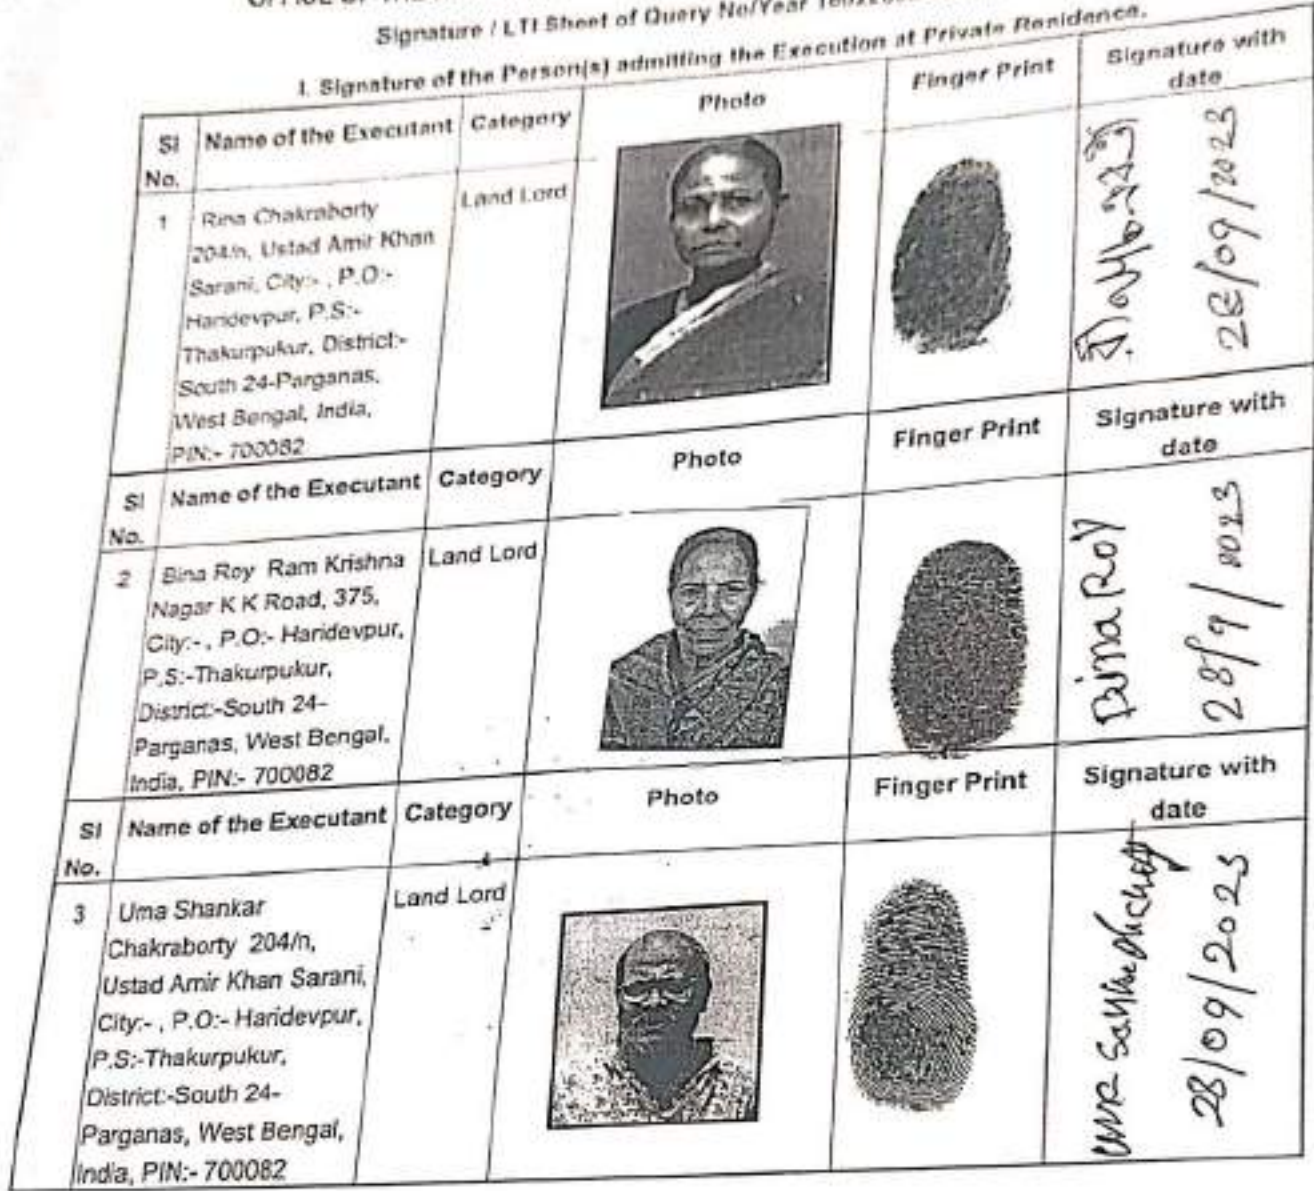 Signature / LTI Sheet of Query No/Year
I. Signature of the Person(s) admitting the Execution at Private Residence.
Sl No. Name of the Executant Category Photo Finger Print Signature with date
1 Rina Chakraborty Land Lord
204/n, Ustad Amir Khan
Sarani, City:- , P.O:-
Haridevpur, P.S:-
Thakurpukur, District:-
South 24-Parganas,
West Bengal, India,
PIN:- 700082
28/09/2023
Sl No. Name of the Executant Category Photo Finger Print Signature with date
2 Bina Roy Ram Krishna Land Lord
Nagar K K Road, 375,
City:- , P.O:- Haridevpur,
P.S:-Thakurpukur,
District:-South 24-
Parganas, West Bengal,
India, PIN:- 700082
Bina Roy
28/9/2023
Sl No. Name of the Executant Category Photo Finger Print Signature with date
3 Uma Shankar Land Lord
Chakraborty 204/n,
Ustad Amir Khan Sarani,
City:- , P.O:- Haridevpur,
P.S:-Thakurpukur,
District:-South 24-
Parganas, West Bengal,
India, PIN:- 700082
28/09/2023